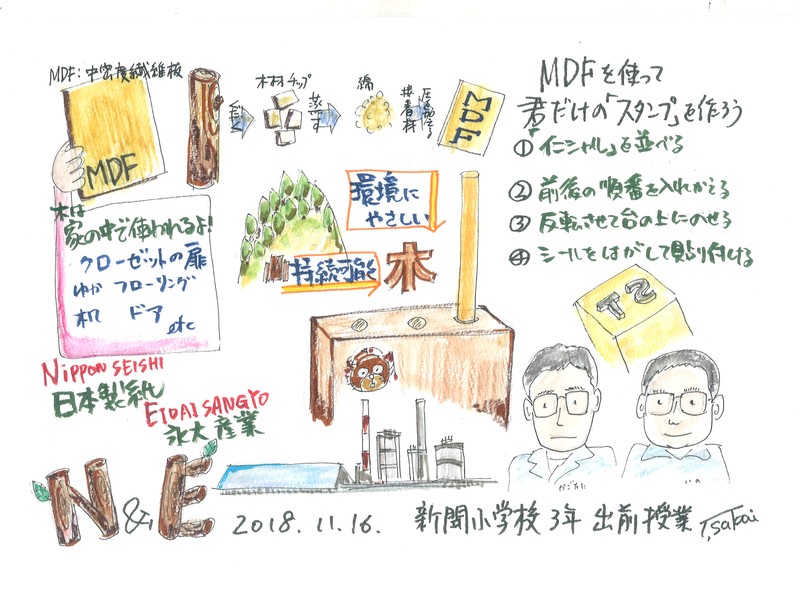 MDF:中密度繊維板
MDF
くだく
木材チップ
蒸す
綿
接着材
圧をかける
MDF
MDFを使って
君だけの「スタンプ」を作ろう
①「イニシャル」を並べる
②前後の順番を入れかえる
③反転させて台の上にのせる
④シールをはがして貼り付ける
木は
家の中で使われるよ!
クローゼットの扉
ゆか フローリング
机 ドア
etc
環境に
やさしい
持続可能
木
TS
NIPPON SEISHI
日本製紙
EIDAI SANGYO
永大産業
N&E
2018.11.16.
新開小学校3年 出前授業
T.Sakai